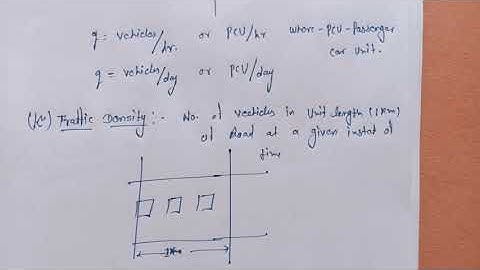 q = vehicles/hr. or PCU/hr where - PCU - Passenger
car unit.
q = vehicles/day or PCU/day
(K) Traffic Density :- No. of vechicles in Unit length (1km)
of Road at a given instat of
time
1km